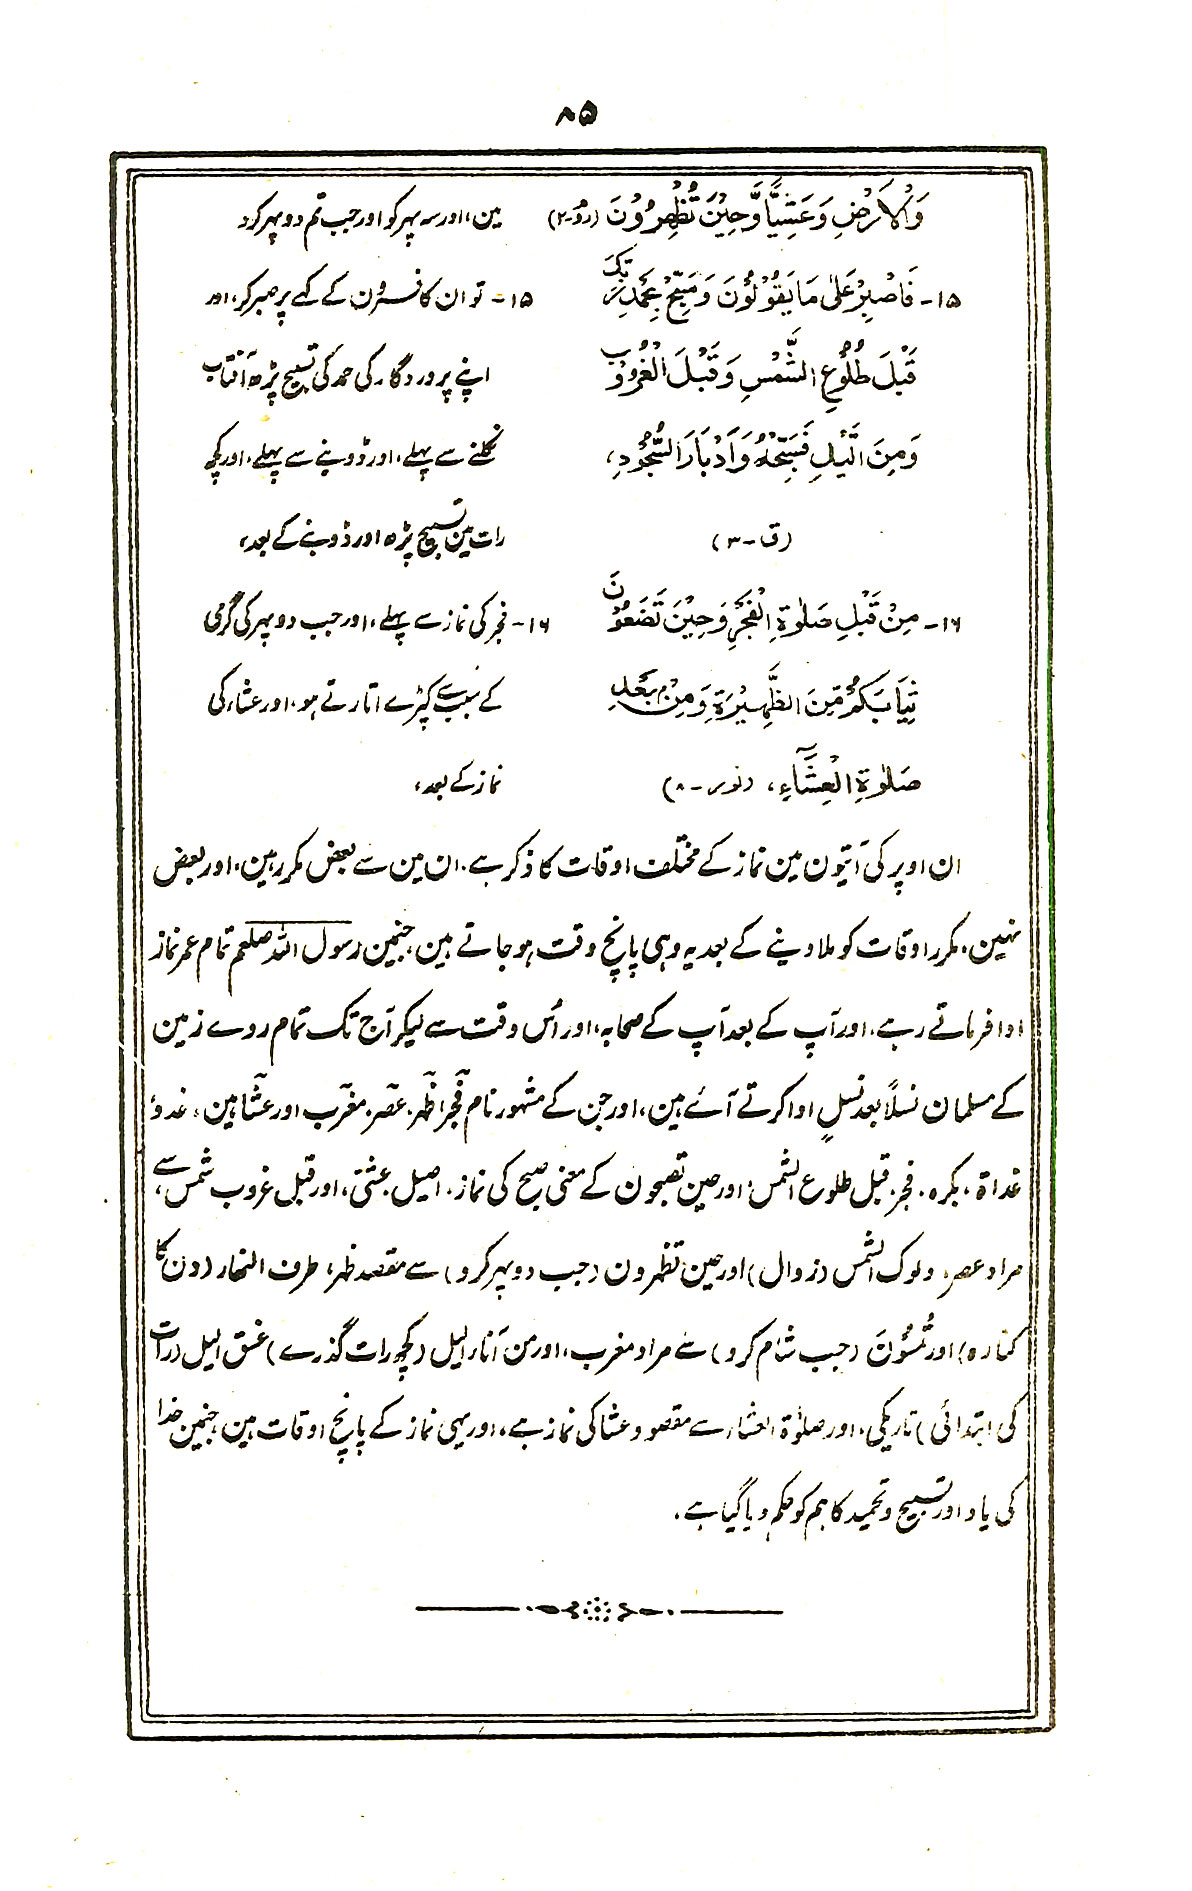 ۸۵
وَالْاَرْضِ وَعَشِيًّا وَّحِيْنَ تُظْهِرُوْنَ (روم-۲) مین، اور سہ پہر کو اور جب تم دوپہر کرو
۱۵- فَاصْبِرْ عَلٰى مَا يَقُوْلُوْنَ وَسَبِّحْ بِحَمْدِ رَبِّكَ ۱۵- تو ان کافرون کے کہے پر صبر کر، اور
قَبْلَ طُلُوْعِ الشَّمْسِ وَقَبْلَ الْغُرُوْبِ اپنے پروردگار کی حمد کی تسبیح پڑھ آفتاب
وَمِنَ الَّيْلِ فَسَبِّحْهُ وَاَدْبَارَ السُّجُوْدِ، نکلنے سے پہلے، اور ڈوبنے سے پہلے، اور کچھ
(ق-۳) رات مین تسبیح پڑھ اور ڈوبنے کے بعد،
۱۶- مِنْ قَبْلِ صَلٰوةِ الْفَجْرِ وَحِيْنَ تَضَعُوْنَ ۱۶- فجر کی نماز سے پہلے، اور جب دوپہر کی گرمی
ثِيَابَكُمْ مِّنَ الظَّهِيْرَةِ وَمِنْۢ بَعْدِ کے سبب سے کپڑے اتارتے ہو، اور عشاء کی
صَلٰوةِ الْعِشَآءِ، (نور-۸) نماز کے بعد،
ان اوپر کی آیتون مین نماز کے مختلف اوقات کا ذکر ہے، ان مین سے بعض مکرر ہین، اور بعض
نہین، مکرر اوقات کو ملا دینے کے بعد یہ وہی پانچ وقت ہو جاتے ہین، جنمین رسول اللہ صلعم تمام عمر نماز
ادا فرماتے رہے، اور آپ کے بعد آپ کے صحابہ، اور اُس وقت سے لیکر آج تک تمام روے زمین
کے مسلمان نسلاً بعد نسلٍ ادا کرتے آئے ہین، اور جن کے مشہور نام فجر، ظہر، عصر، مغرب اور عشا ہین، غدوّ
غداة، بکرہ، فجر، قبل طلوع الشمس، اور حین تصبحون کے معنی صبح کی نماز، اصیل، عشی، اور قبل غروب شمس سے،
مراد عصر، دلوک الشمس (زوال) اور حین تظہرون (جب دوپہر کرو) سے مقصد ظہر، طرف النہار (دن کا
کنارہ) اور تُمْسُوْنَ (جب شام کرو) سے مراد مغرب، اور من آناء الیل (کچھ رات گذرے) غسق الیل (رات
کی ابتدائی) تاریکی، اور صلوٰة العشاء سے مقصود عشا کی نماز ہے، اور یہی نماز کے پانچ اوقات ہین، جنمین خدا
کی یاد اور تسبیح و تحمید کا ہم کو حکم دیا گیا ہے،